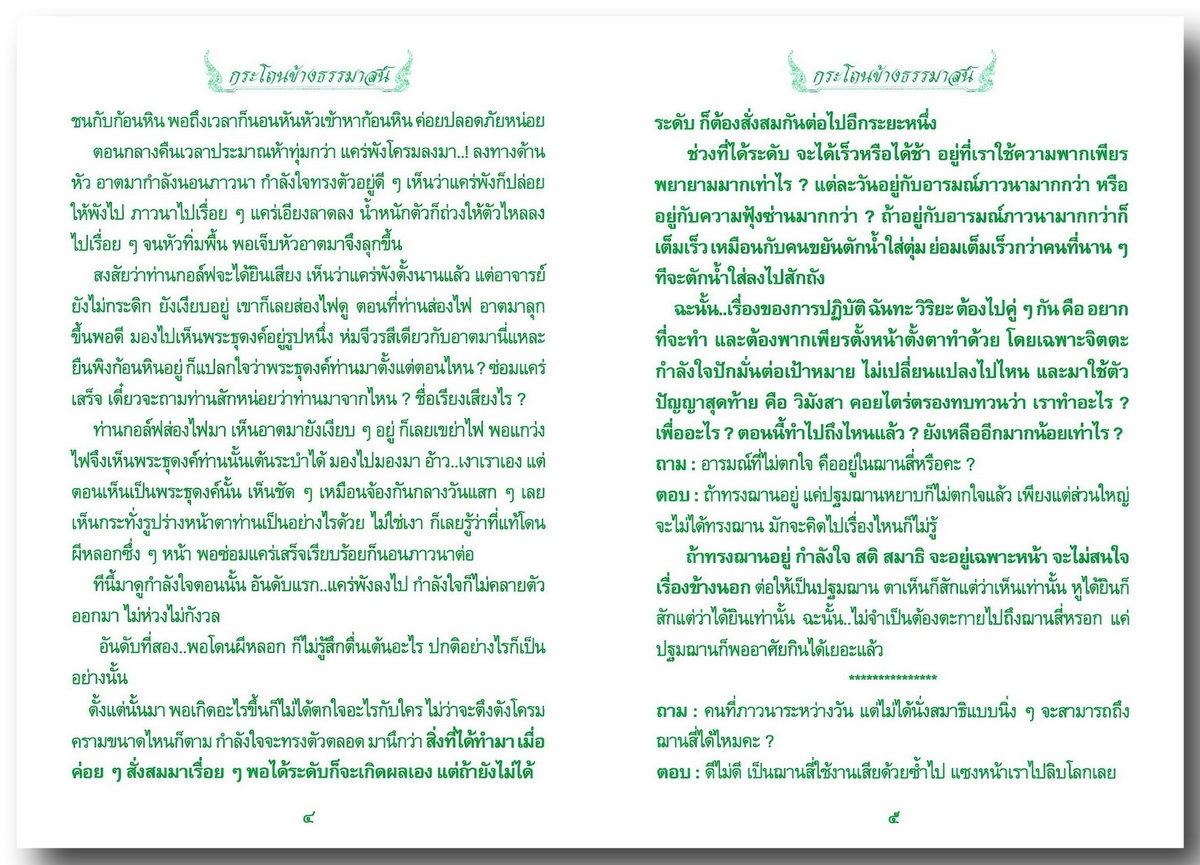 กระโถนข้างธรรมาสน์
ชนกับก้อนหิน พอถึงเวลาก็นอนหันหัวเข้าหาก้อนหิน ค่อยปลอดภัยหน่อย
ตอนกลางคืนเวลาประมาณห้าทุ่มกว่า แคร่พังโครมลงมา..! ลงทางด้าน
หัว อาตมากำลังนอนภาวนา กำลังใจทรงตัวอยู่ดี ๆ เห็นว่าแคร่พังก็ปล่อย
ให้พังไป ภาวนาไปเรื่อย ๆ แคร่เอียงลาดลง น้ำหนักตัวก็ถ่วงให้ตัวไหลลง
ไปเรื่อย ๆ จนหัวทิ่มพื้น พอเจ็บหัวอาตมาจึงลุกขึ้น
สงสัยว่าท่านกอล์ฟจะได้ยินเสียง เห็นว่าแคร่พังตั้งนานแล้ว แต่อาจารย์
ยังไม่กระดิก ยังเงียบอยู่ เขาก็เลยส่องไฟดู ตอนที่ท่านส่องไฟ อาตมาลุก
ขึ้นพอดี มองไปเห็นพระธุดงค์อยู่รูปหนึ่ง ห่มจีวรสีเดียวกับอาตมานี่แหละ
ยืนพิงก้อนหินอยู่ ก็แปลกใจว่าพระธุดงค์ท่านมาตั้งแต่ตอนไหน ? ซ่อมแคร่
เสร็จ เดี๋ยวจะถามท่านสักหน่อยว่าท่านมาจากไหน ? ชื่อเรียงเสียงไร ?
ท่านกอล์ฟส่องไฟมา เห็นอาตมายังเงียบ ๆ อยู่ ก็เลยเขย่าไฟ พอแกว่ง
ไฟจึงเห็นพระธุดงค์ท่านนั้นเต้นระบำได้ มองไปมองมา อ้าว..เงาเราเอง แต่
ตอนเห็นเป็นพระธุดงค์นั้น เห็นชัด ๆ เหมือนจ้องกันกลางวันแสก ๆ เลย
เห็นกระทั่งรูปร่างหน้าตาท่านเป็นอย่างไรด้วย ไม่ใช่เงา ก็เลยรู้ว่าที่แท้โดน
ผีหลอกซึ่ง ๆ หน้า พอซ่อมแคร่เสร็จเรียบร้อยก็นอนภาวนาต่อ
ทีนี้มาดูกำลังใจตอนนั้น อันดับแรก..แคร่พังลงไป กำลังใจก็ไม่คลายตัว
ออกมา ไม่ห่วงไม่กังวล
อันดับที่สอง..พอโดนผีหลอก ก็ไม่รู้สึกตื่นเต้นอะไร ปกติอย่างไรก็เป็น
อย่างนั้น
ตั้งแต่นั้นมา พอเกิดอะไรขึ้นก็ไม่ได้ตกใจอะไรกับใคร ไม่ว่าจะตึงตังโครม
ครามขนาดไหนก็ตาม กำลังใจจะทรงตัวตลอด มานึกว่า สิ่งที่ได้ทำมา เมื่อ
ค่อย ๆ สั่งสมมาเรื่อย ๆ พอได้ระดับก็จะเกิดผลเอง แต่ถ้ายังไม่ได้
๔
กระโถนข้างธรรมาสน์
ระดับ ก็ต้องสั่งสมกันต่อไปอีกระยะหนึ่ง
ช่วงที่ได้ระดับ จะได้เร็วหรือได้ช้า อยู่ที่เราใช้ความพากเพียร
พยายามมากเท่าไร ? แต่ละวันอยู่กับอารมณ์ภาวนามากกว่า หรือ
อยู่กับความฟุ้งซ่านมากกว่า ? ถ้าอยู่กับอารมณ์ภาวนามากกว่าก็
เต็มเร็ว เหมือนกับคนขยันตักน้ำใส่ตุ่ม ย่อมเต็มเร็วกว่าคนที่นาน ๆ
ทีจะตักน้ำใส่ลงไปสักถัง
ฉะนั้น..เรื่องของการปฏิบัติ ฉันทะ วิริยะ ต้องไปคู่ ๆ กัน คือ อยาก
ที่จะทำ และต้องพากเพียรตั้งหน้าตั้งตาทำด้วย โดยเฉพาะจิตตะ
กำลังใจปักมั่นต่อเป้าหมาย ไม่เปลี่ยนแปลงไปไหน และมาใช้ตัว
ปัญญาสุดท้าย คือ วิมังสา คอยไตร่ตรองทบทวนว่า เราทำอะไร ?
เพื่ออะไร ? ตอนนี้ทำไปถึงไหนแล้ว ? ยังเหลืออีกมากน้อยเท่าไร ?
ถาม : อารมณ์ที่ไม่ตกใจ คืออยู่ในฌานสี่หรือคะ ?
ตอบ : ถ้าทรงฌานอยู่ แค่ปฐมฌานหยาบก็ไม่ตกใจแล้ว เพียงแต่ส่วนใหญ่
จะไม่ได้ทรงฌาน มักจะคิดไปเรื่องไหนก็ไม่รู้
ถ้าทรงฌานอยู่ กำลังใจ สติ สมาธิ จะอยู่เฉพาะหน้า จะไม่สนใจ
เรื่องข้างนอก ต่อให้เป็นปฐมฌาน ตาเห็นก็สักแต่ว่าเห็นเท่านั้น หูได้ยินก็
สักแต่ว่าได้ยินเท่านั้น ฉะนั้น..ไม่จำเป็นต้องตะกายไปถึงฌานสี่หรอก แค่
ปฐมฌานก็พออาศัยกินได้เยอะแล้ว
***************
ถาม : คนที่ภาวนาระหว่างวัน แต่ไม่ได้นั่งสมาธิแบบนิ่ง ๆ จะสามารถถึง
ฌานสี่ได้ไหมคะ ?
ตอบ : ดีไม่ดี เป็นฌานสี่ใช้งานเสียด้วยซ้ำไป แซงหน้าเราไปลิบโลกเลย
๕